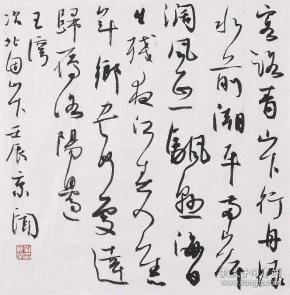 客路青山下行舟綠
水前潮平兩岸
闊風正一帆懸海日
生殘夜江春入舊
年鄉書何處達
歸雁洛陽邊
王灣
次北固山下 壬辰